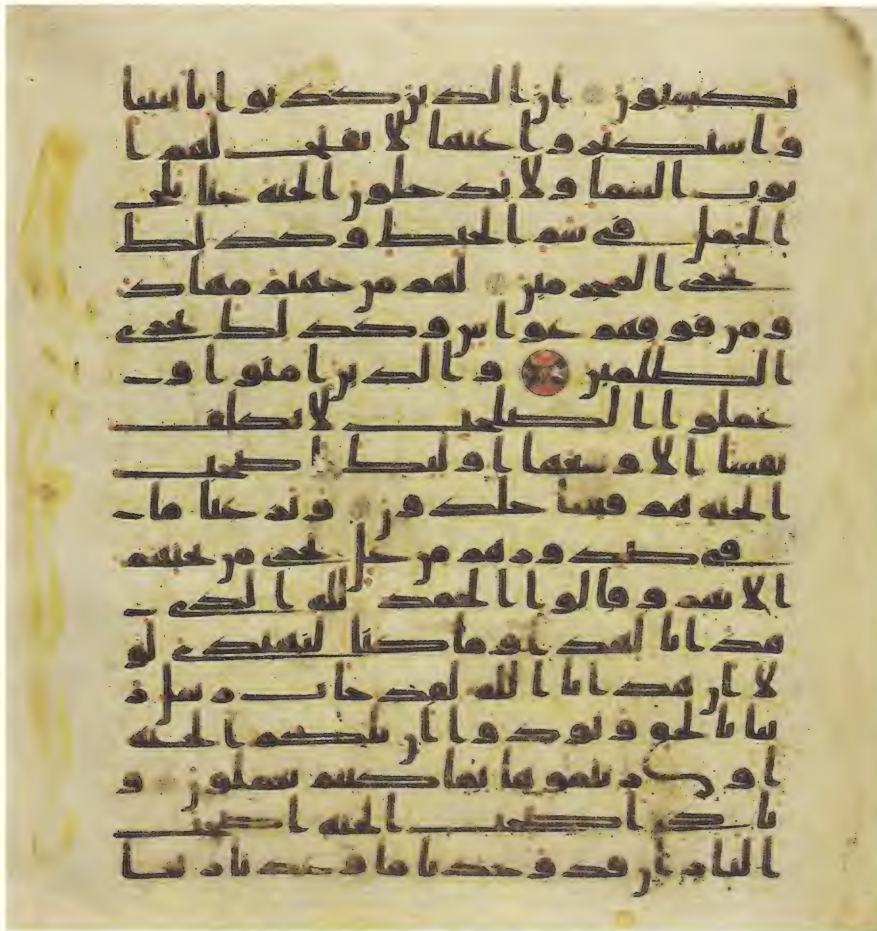 تكسبون ان الذين كذبوا بايتنا
واستكبروا عنها لا تفتح لهم ا
بوب السما ولا يدخلون الجنة حتا يلج
الجمل في سم الخيط وكذلك
نجزي المجرمين لهم من جهنم مهاد
ومن فوقهم غواش وكذلك نجزي
الظلمين والذين امنوا و
عملوا الصلحت لا نكلف
نفسا الا وسعها اوليك اصحب
الجنة هم فيها خلدون ونزعنا ما
في صدورهم من غل تجري من تحتهم
الانهر وقالوا الحمد لله الذي
هدانا لهذا وما كنا لنهتدي لو
لا ان هدانا الله لقد جات رسل ر
بنا بالحق ونودوا ان تلكم الجنة
اورثتموها بما كنتم تعملون و
نادى اصحب الجنة اصحب
النار ان قد وجدنا ما وعدنا ربنا